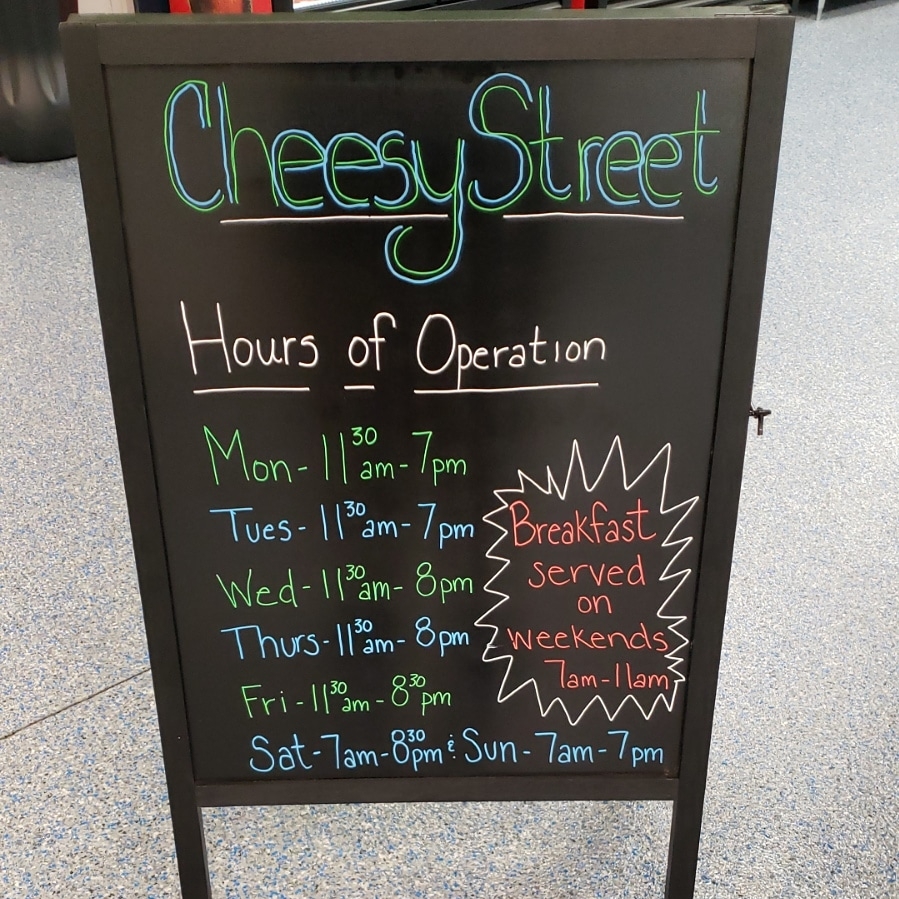 Cheesy Street
Hours of Operation
Mon - 11 30 am - 7pm
Tues - 11 30 am - 7pm
Wed - 11 30 am - 8pm
Thurs - 11 30 am - 8pm
Fri - 11 30 am - 8 30 pm
Sat - 7am - 8 30 pm & Sun - 7am - 7pm
Breakfast
served
on
weekends
7am - 11am